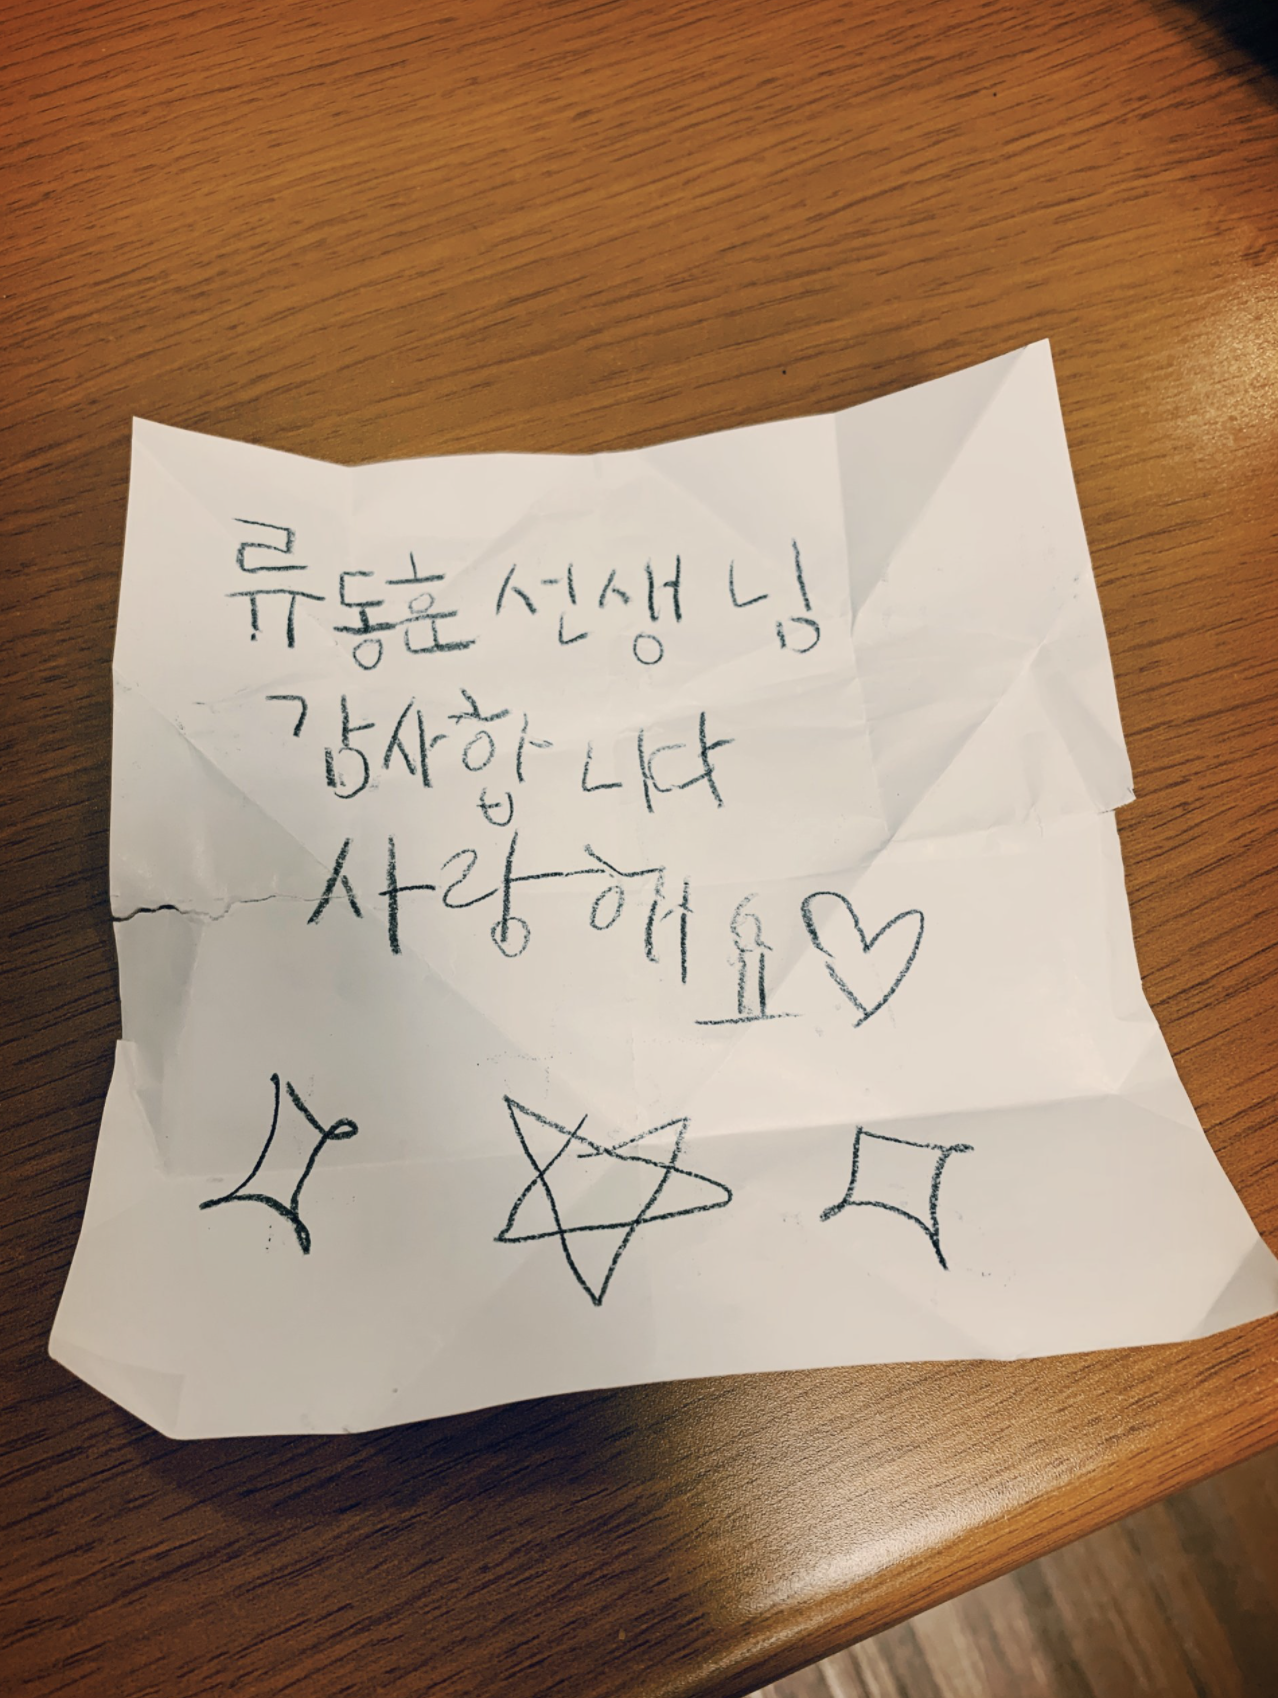 류동훈 선생님
감사합니다
사랑해요♡